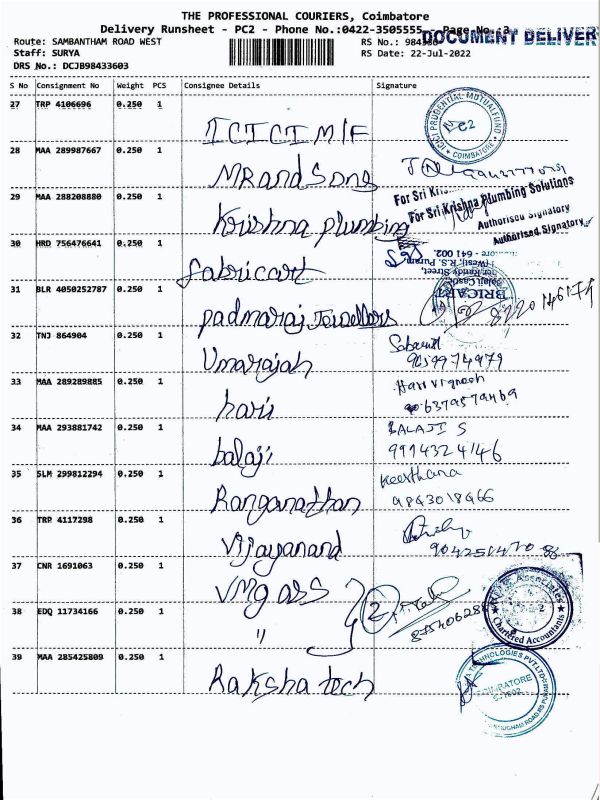 THE PROFESSIONAL COURIERS, Coimbatore
Delivery Runsheet - PC2 - Phone No.:0422-3505555 Page No.:3
DOCUMENT DELIVER
Route: SAMBANTHAM ROAD WEST
Staff: SURYA RS Date: 22-Jul-2022
DRS No.: DCJB98433603
S No Consignment No Weight PCS Consignee Details Signature
27 TRP 4106696 0.250 1
ICICI M/F
ICICI PRUDENTIAL MUTUAL FUND
COIMBATORE
28 MAA 289987667 0.250 1
MR and Sons
29 MAA 288208880 0.250 1
Krishna plumbing
For Sri Krishna Plumbing Solutions
Authorised Signatory
Authorised Signatory
30 HRD 756476641 0.250 1
fabricart
641 002.
31 BLR 4050252787 0.250 1
padmaraj Jewellers
32 TNJ 864904 0.250 1
Umarajah
33 MAA 289289885 0.250 1
hari
Hari Vignesh
34 MAA 293881742 0.250 1
balaji
BALAJI S
35 SLM 299812294 0.250 1
Ranganathan
Keerthana
36 TRP 4117298 0.250 1
Vijayanand
37 CNR 1691063 0.250 1
VMG ass
Associates
Chartered Accountants
38 EDQ 11734166 0.250 1
"
39 MAA 285425809 0.250 1
Raksha tech
TECHNOLOGIES PVT.LTD